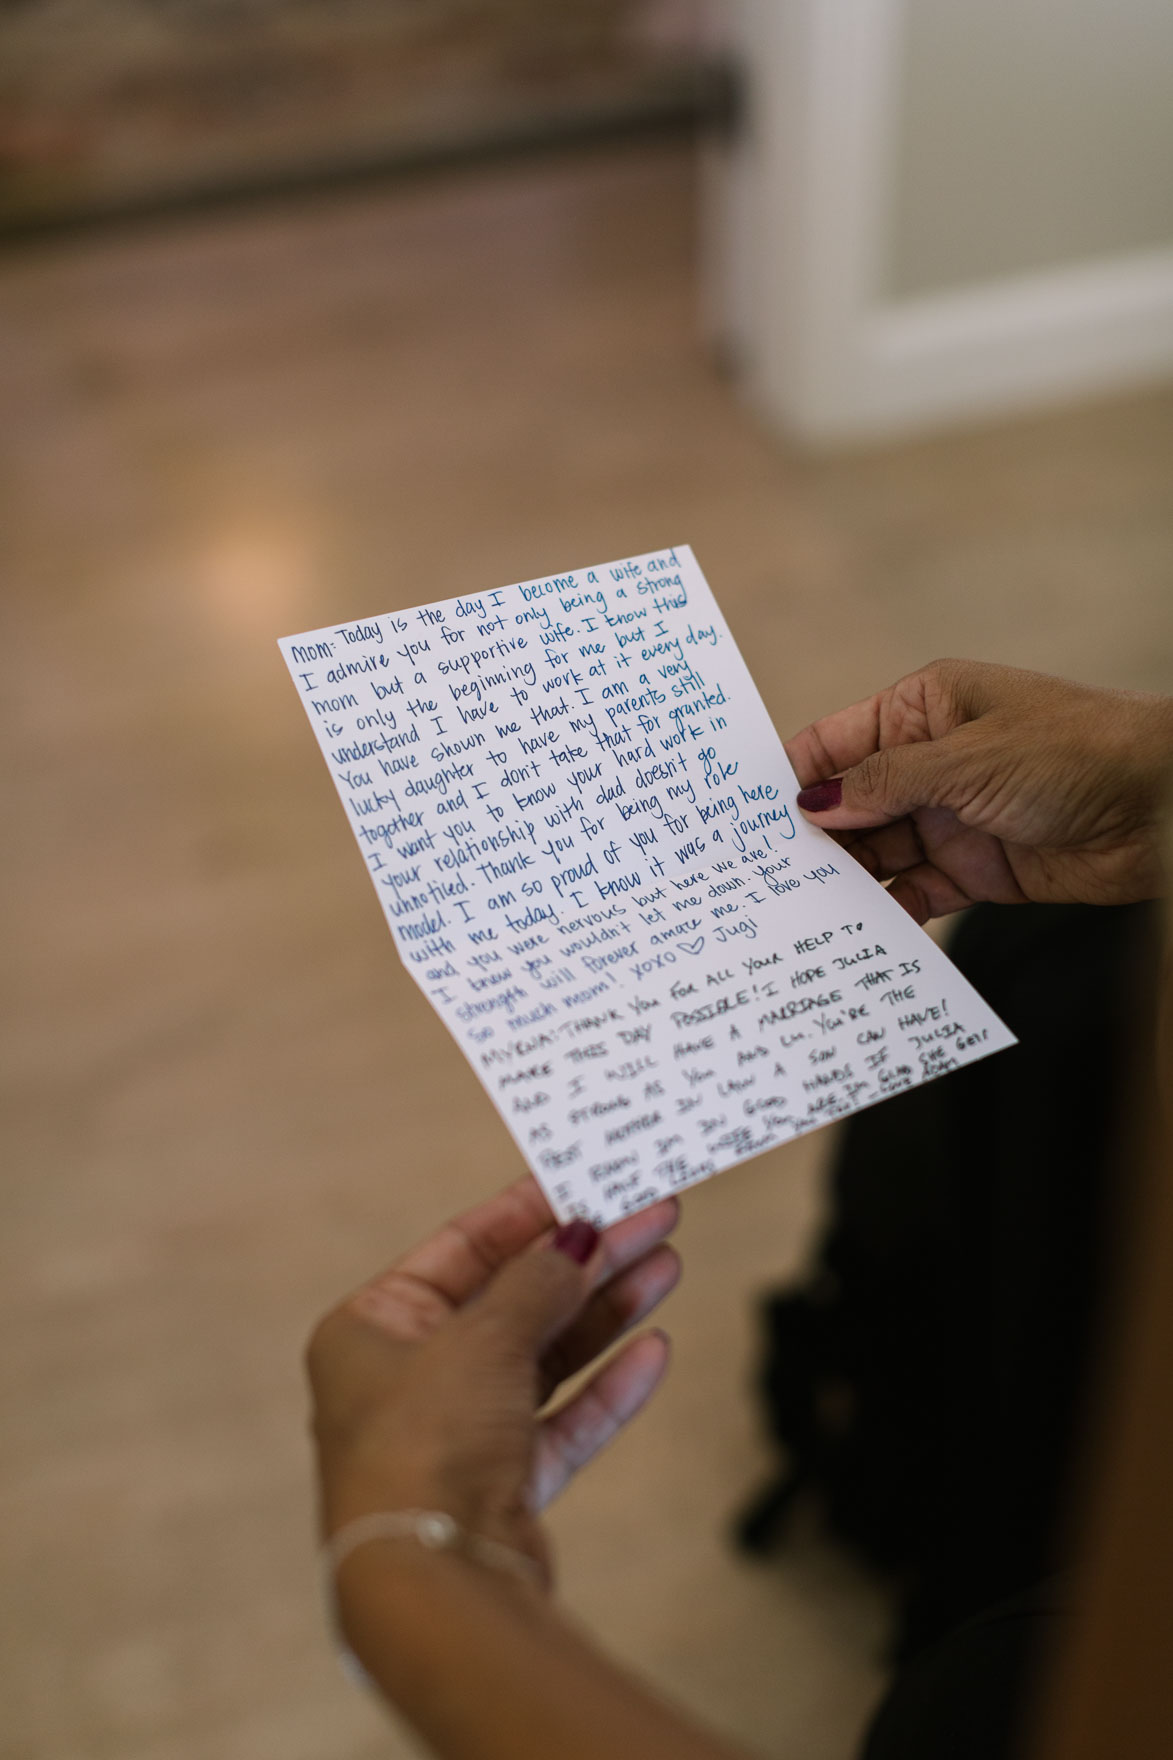 Mom: Today is the day I become a wife and
I admire you for not only being a strong
mom but a supportive wife. I know this
is only the beginning for me but I
understand I have to work at it every day.
You have shown me that. I am a very
lucky daughter to have my parents still
together and I don't take that for granted.
I want you to know your hard work in
your relationship with dad doesn't go
unnoticed. Thank you for being my role
model. I am so proud of you for being here
with me today. I know it was a journey
and you were nervous but here we are!
I knew you wouldn't let me down. Your
strength will forever amaze me. I love you
so much mom! XOXO ♡ Jugi
MYRNA: THANK YOU FOR ALL YOUR HELP TO
MAKE THIS DAY POSSIBLE! I HOPE JULIA
AND I WILL HAVE A MARRIAGE THAT IS
AS STRONG AS YOU AND LU. YOU'RE THE
BEST MOTHER IN LAW A SON CAN HAVE!
I KNOW IM IN GOOD HANDS IF JULIA
IS HALF THE WIFE YOU ARE. IM GLAD SHE GOT
GOOD LOOKS FROM YOU TOO! - LOVE ADAM